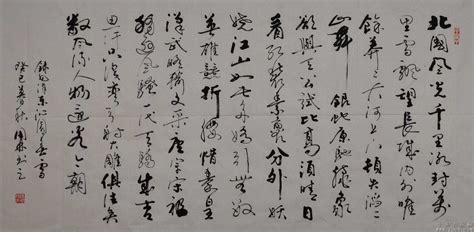 北國風光千里冰封萬
里雪飄望長城内外唯
餘莽莽大河上下頓失滔滔
山舞銀蛇原馳蠟象
欲與天公試比高須晴日
看紅裝素裹分外妖
嬈江山如此多嬌引無數
英雄競折腰惜秦皇
漢武略輸文采唐宗宋祖
稍遜風騷一代天驕成吉
思汗只識彎弓射大雕俱往矣
數風流人物還看今朝
錄毛澤東沁園春雪
癸巳暮秋